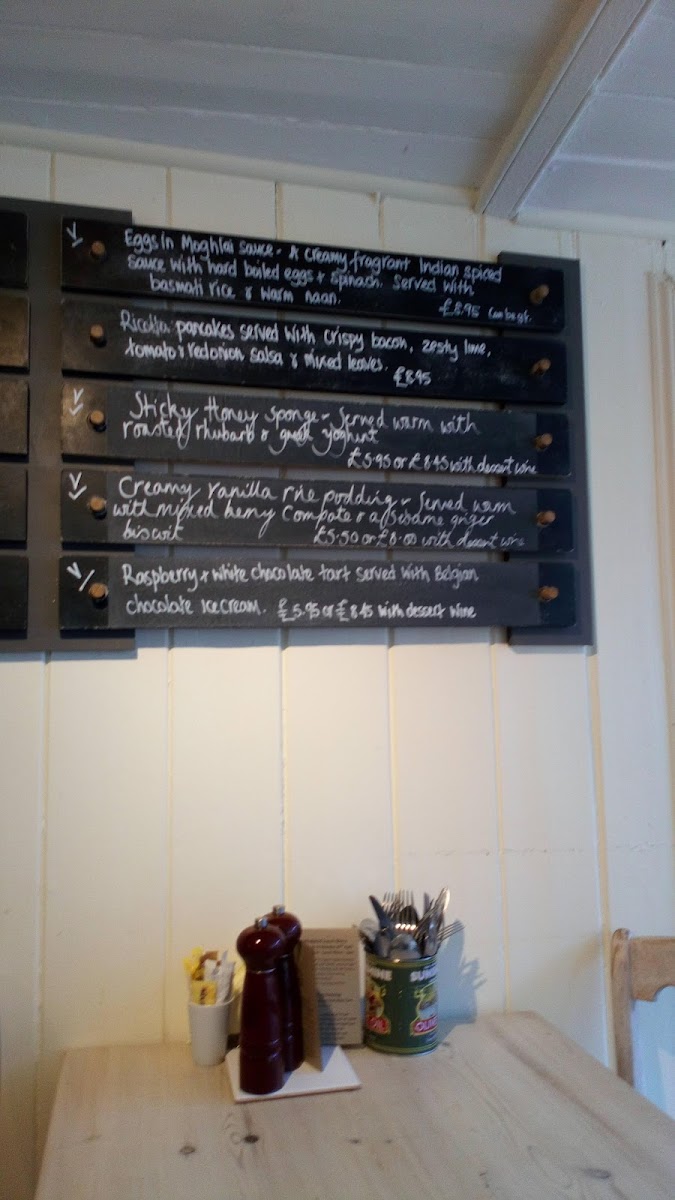 V
Eggs in Moghlai sauce - A creamy fragrant Indian spiced
sauce with hard boiled eggs + spinach. Served with
basmati rice & warm naan.
£8.95 Can be gf.
Ricotta pancakes served with crispy bacon, zesty lime,
tomato & red onion salsa & mixed leaves.
£8.95
V
Sticky Honey sponge - Served warm with
roasted rhubarb & greek yoghurt
£5.95 or £8.45 with dessert wine
V
Creamy vanilla rice pudding - Served warm
with mixed berry compote & a sesame ginger
biscuit
£5.50 or £8.00 with dessert wine
V
Raspberry & white chocolate tart served with Belgian
chocolate ice cream. £5.95 or £8.45 with dessert wine